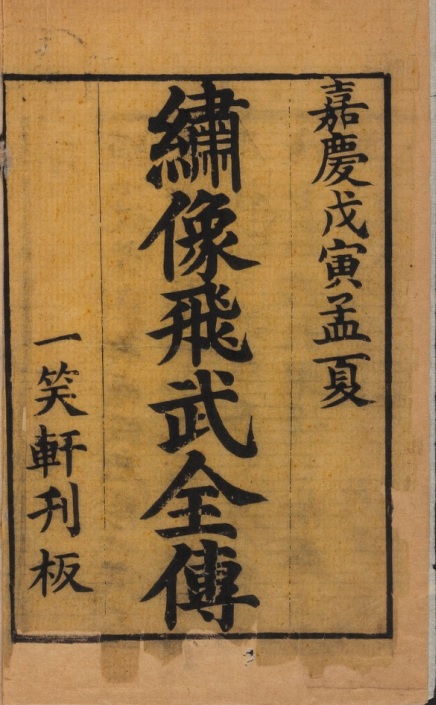 嘉慶戊寅孟夏
繡像飛武全傳
一笑軒刋板